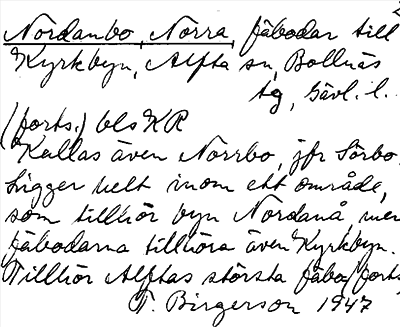 Nordanbo, Norra, fäbodar till
Kyrkbyn, Alfta sn, Bollnäs
tg, Gävl. l.
(forts.) bls KR
Kallas även Norrbo, jfr Sörbo.
Ligger helt inom ett område,
som tillhör byn Nordanå, men
fäbodarna tillhöra även Kyrkbyn.
Tillhör Alftas största fäbo(forts.
T. Birgerson 1947